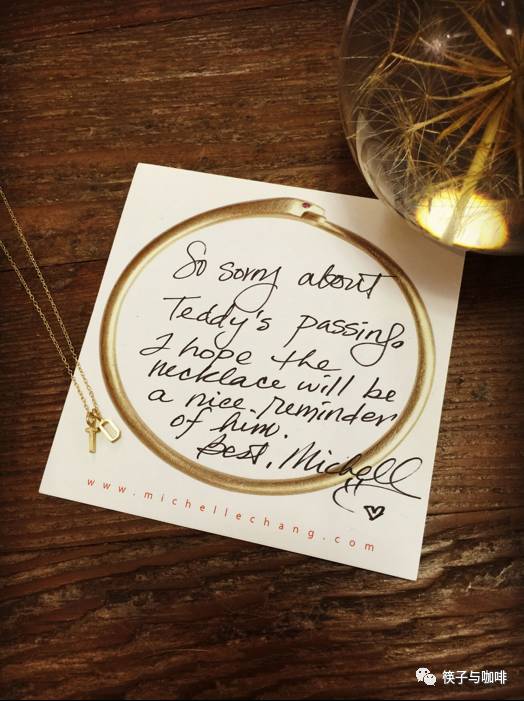 So sorry about
Teddy's passing.
I hope the
necklace will be
a nice reminder
of him.
Best, Michelle
www.michellechang.com
筷子与咖啡